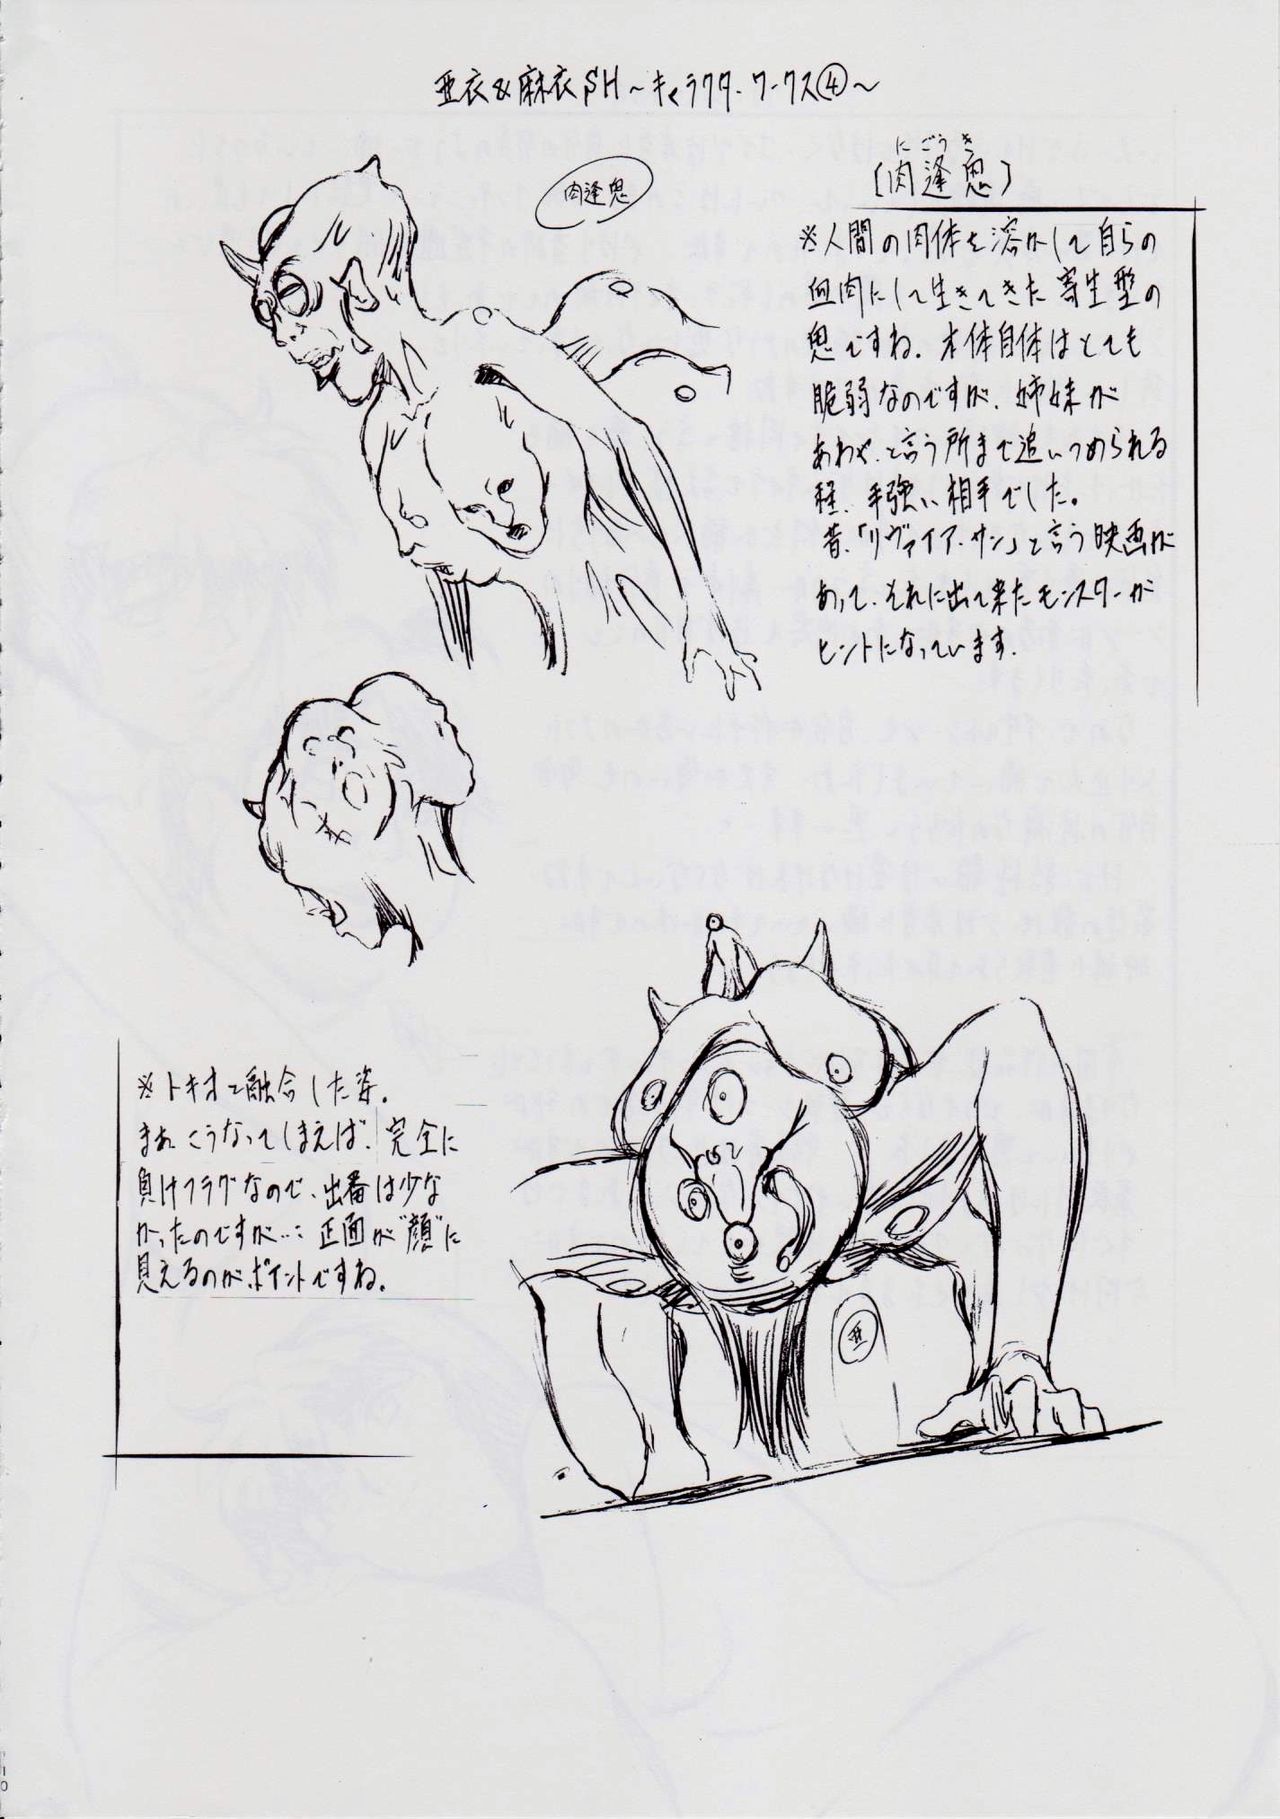 亜衣&麻衣SH〜キャラクターワークス④〜
肉逢鬼
にごうき
[肉逢鬼]
※人間の肉体を溶かして自らの
血肉にして生きてきた寄生型の
鬼ですね。本体自体はとても
脆弱なのですが、姉妹が
あわや、と言う所まで追いつめられる
程、手強い相手でした。
昔、「リヴァイアサン」と言う映画が
あって、それに出て来たモンスターが
ヒントになっています。
※トキオと融合した姿。
まあ、こうなってしまえば、完全に
負けフラグなので、出番は少な
かったのですが…:正面が"顔"に
見えるのがポイントですね。
亜
10